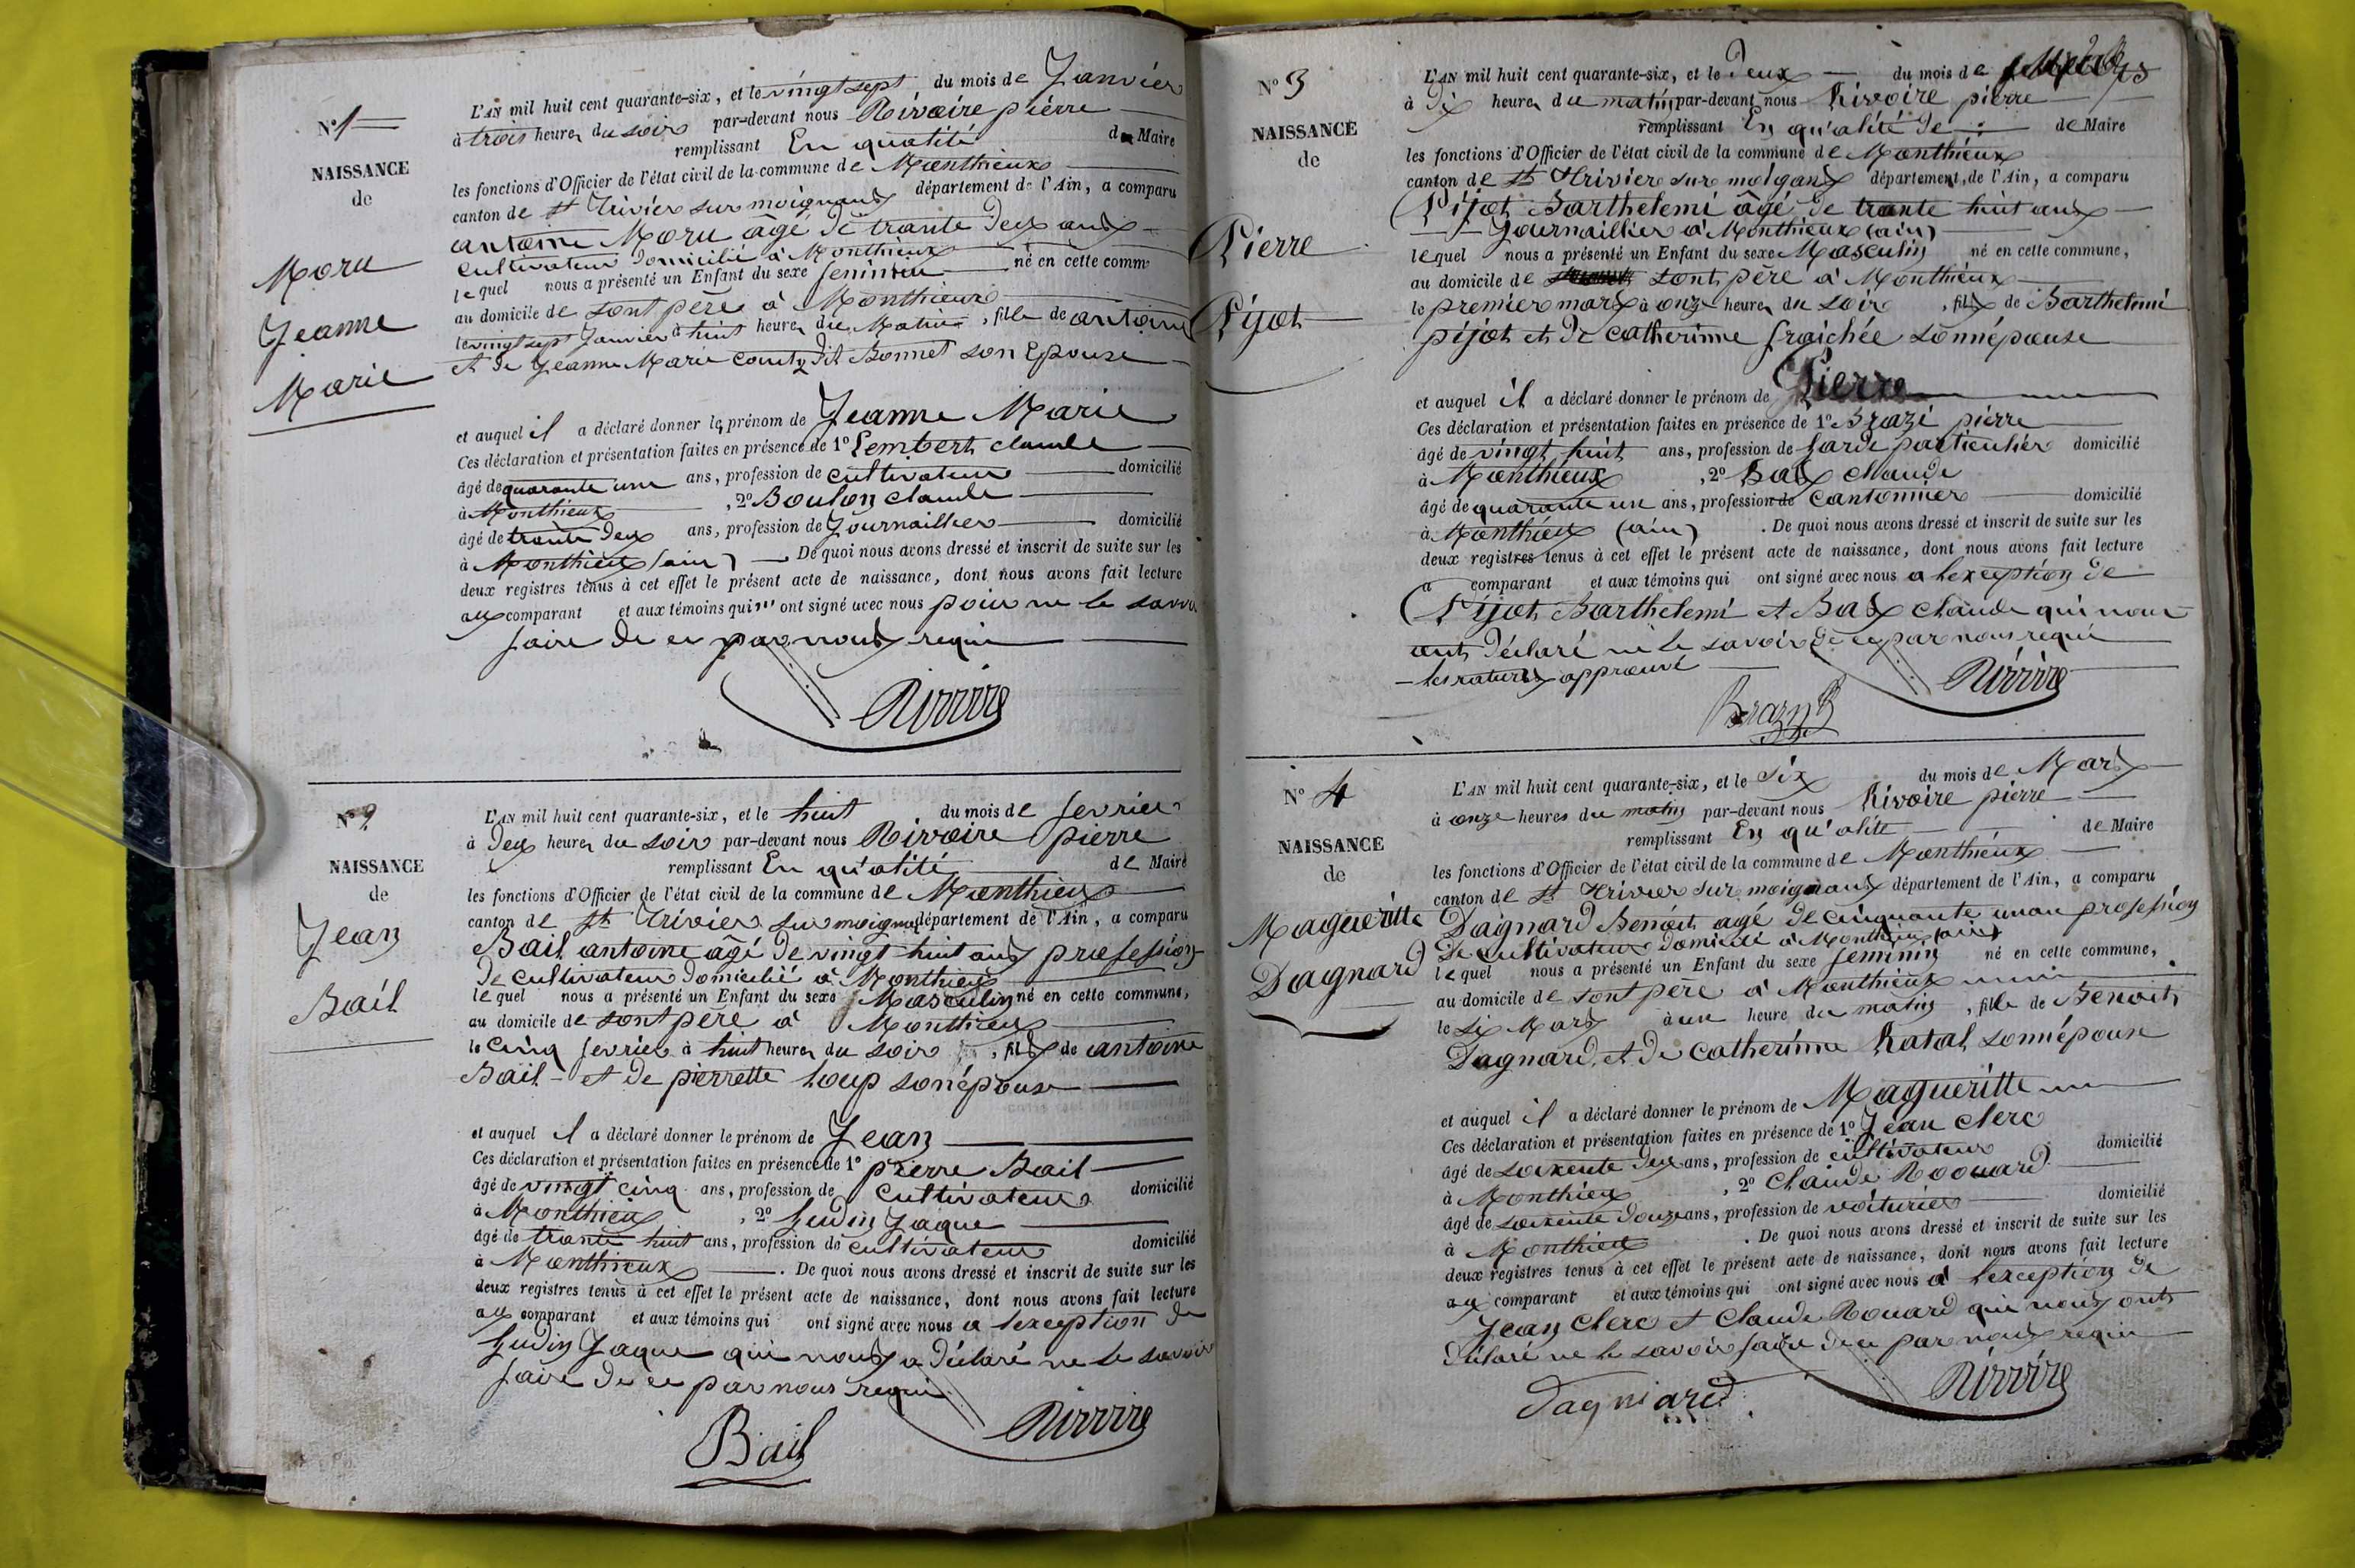 N° 1
NAISSANCE
de
Moru
Jeanne
Marie
L'AN mil huit cent quarante-six, et le vingt sept du mois de Janvier
à trois heures du soir par-devant nous Rivoire pierre
remplissant En qualité de Maire
les fonctions d'Officier de l'état civil de la commune de Monthieux
canton de st Trivier sur moignans département de l'Ain, a comparu
antoine Moru âgé de trante deux ans
cultivateur domicilié à Monthieux
lequel nous a présenté un Enfant du sexe feminin né en cette comm
au domicile de sont père à Monthieux
le vingt sept Janvier à huit heures du Matin, fille de antoine
et de Jeanne Marie dit Bonnet son Epouse
et auquel il a déclaré donner le prénom de Jeanne Marie
Ces déclaration et présentation faites en présence de 1° Lembert claude
âgé de quarante une ans, profession de cultivateur domicilié
à Monthieux, 2° Boulon claude
âgé de trante deux ans, profession de Journaillier domicilié
à Monthieux (ain) De quoi nous avons dressé et inscrit de suite sur les
deux registres tenus à cet effet le présent acte de naissance, dont nous avons fait lecture
aux comparant et aux témoins qui n' ont signé avec nous pour ne le savoir
faire de ce par nous requi
Rivoire
N° 2
NAISSANCE
de
Jean
Bail
L'AN mil huit cent quarante-six, et le huit du mois de fevrier
à deux heures du soir par-devant nous Rivoire pierre
remplissant En qu'alité de Maire
les fonctions d'Officier de l'état civil de la commune de Monthieux
canton de st Trivier sur moignans département de l'Ain, a comparu
Bail antoine âgé de vingt huit ans profession
de cultivateur domicilié à Monthieux
lequel nous a présenté un Enfant du sexe Masculin né en cette commune,
au domicile de sont père à Monthieux
le cinq fevrier à huit heures du soir, fils de antoine
Bail et de pierrette Loup son épouse
et auquel il a déclaré donner le prénom de Jean
Ces déclaration et présentation faites en présence de 1° pierre Bail
âgé de vingt cinq ans, profession de cultivateur domicilié
à Monthieux, 2° Gudin Jaque
âgé de trante huit ans, profession de cultivateur domicilié
à Monthieux. De quoi nous avons dressé et inscrit de suite sur les
deux registres tenus à cet effet le présent acte de naissance, dont nous avons fait lecture
aux comparant et aux témoins qui ont signé avec nous a lexception de
Gudin Jaque qui nous a déclaré ne le savoir
faire de ce par nous requi
Bail
Rivoire
N° 3
NAISSANCE
de
Pierre
Pijot
L'AN mil huit cent quarante-six, et le deux du mois de Mars
à dix heures du matin par-devant nous Rivoire pierre
remplissant En qu'alité de de Maire
les fonctions d'Officier de l'état civil de la commune de Monthieux
canton de st Trivier sur moignans département de l'Ain, a comparu
Pijot Barthelemi âgé de trante huit ans
Journaillier à Monthieux (ain)
lequel nous a présenté un Enfant du sexe Masculin né en cette commune,
au domicile de sont père à Monthieux
le premier mars à onze heures du soir, fils de Barthelemi
pijot et de catherinne fraichée sonnépouse
et auquel il a déclaré donner le prénom de Pierre
Ces déclaration et présentation faites en présence de 1° Brazi pierre
âgé de vingt huit ans, profession de Garde particulier domicilié
à Monthieux, 2° Bas claude
âgé de quarante un ans, profession de cantonnier domicilié
à Monthieux (ain). De quoi nous avons dressé et inscrit de suite sur les
deux registres tenus à cet effet le présent acte de naissance, dont nous avons fait lecture
a comparant et aux témoins qui ont signé avec nous a lexception de
Pijot Barthelemi et Bas claude qui nous
ont déclaré ne le savoir de ce par nous requi
les ratures approuvé
Rivoire
Brazy
N° 4
NAISSANCE
de
Magueritte
Dagnard
L'AN mil huit cent quarante-six, et le Six du mois de Mars
à onze heures du matin par-devant nous Rivoire pierre
remplissant En qu'alité de Maire
les fonctions d'Officier de l'état civil de la commune de Monthieux
canton de st Trivier sur moignans département de l'Ain, a comparu
Dagnard Benoit agé de cinquante unan profession
de cultivateur domicilié à Monthieux (ain)
lequel nous a présenté un Enfant du sexe feminin né en cette commune,
au domicile de sont père à Monthieux
le six Mars à une heure du matin, fille de Benoit
Dagnard et de catherinne Ratal sonnépouse
et auquel il a déclaré donner le prénom de Magueritte
Ces déclaration et présentation faites en présence de 1° Jean clerc
âgé de soixente deux ans, profession de cultivateur domicilié
à Monthieux, 2° Claude Roouard
âgé de soixente douze ans, profession de voiturier domicilié
à Monthieux. De quoi nous avons dressé et inscrit de suite sur les
deux registres tenus à cet effet le présent acte de naissance, dont nous avons fait lecture
aux comparant et aux témoins qui ont signé avec nous à lexception de
Jean Clerc et Claude Rouard qui nous ont
déclaré ne le savoir faire de ce par nous requi
Dagniard
Rivoire